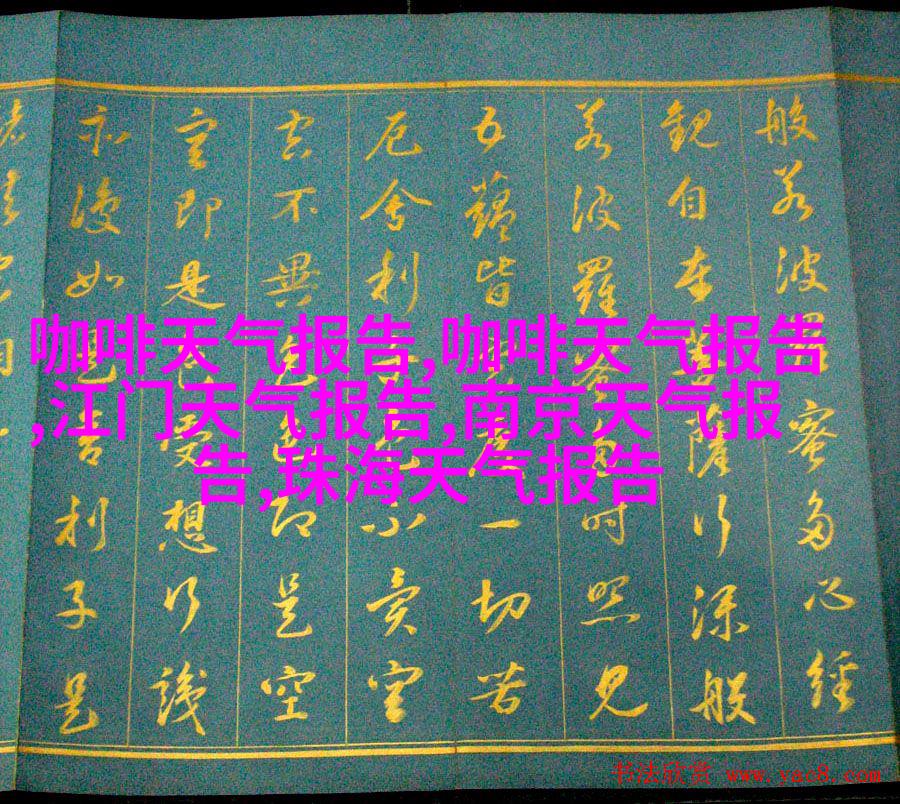 般若波羅蜜多心經
觀自在菩薩行深般
若波羅蜜多時照見
五蘊皆空度一切苦
厄舍利子色不異空
空不異色色即是空
空即是色受想行識
亦復如是舍利子是
諸法空相
咖啡天气报告,咖啡天气报告
,江门天气报告,南京天气报
告,珠海天气报告
书法欣赏 www.yac8.com